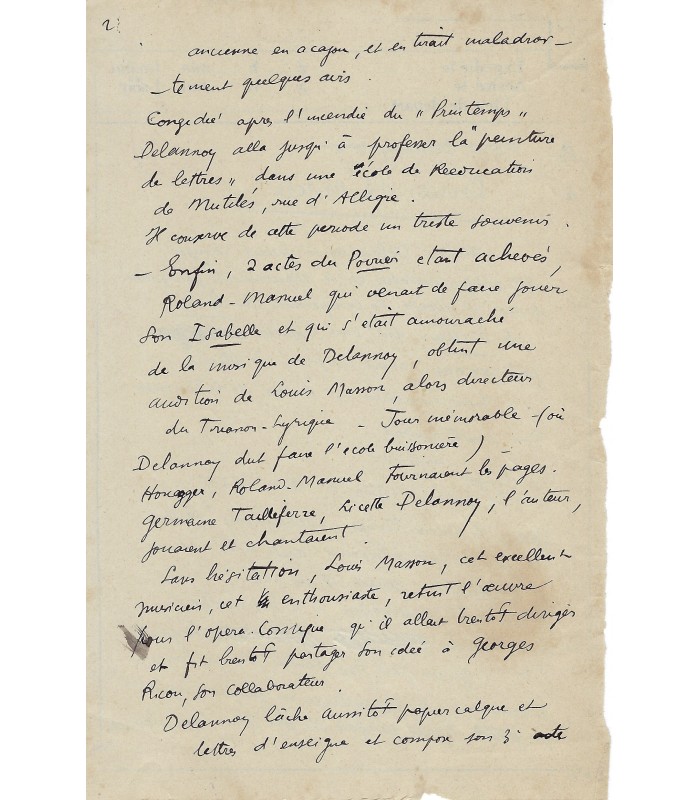 2
ancienne en acajou, et en tirait maladroi-
-tement quelques avis.
Congédié après l'incendie du "Printemps"
Delannoy alla jusqu'à professer la "peinture
de lettres" dans une école de Rééducation
de Mutilés, rue d'Alligre.
Il conserve de cette période un triste souvenir.
- Enfin, 2 actes du Poirier étant achevés,
Roland-Manuel qui venait de faire jouer
son Isabelle et qui s'était amouraché
de la musique de Delannoy, obtint une
audition de Louis Masson, alors directeur
du Trianon-Lyrique - Jour mémorable - (où
Delannoy dut faire l'école buissonière)
Honegger, Roland-Manuel tournaient les pages.
Germaine Tailleferre, Lisette Delannoy, l'auteur,
jouaient et chantaient.
Sans hésitation, Louis Masson, cet excellent
musicien, cet enthousiaste, retint l'œuvre
pour l'opéra-Comique qu'il allait bientôt diriger
et fit bientôt partager son idée à Georges
Ricou, son collaborateur.
Delannoy lâche aussitôt papier calque et
lettres d'enseigne et compose son 3e acte